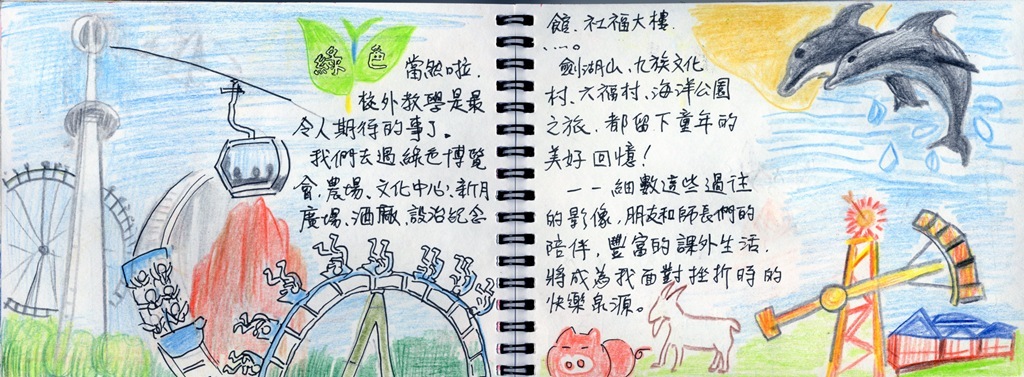 綠色
當然啦，
校外教學是最
令人期待的事了。
我們去過綠色博覽
會、農場、文化中心、新月
廣場、酒廠、設治紀念
館、社福大樓、
……。
劍湖山、九族文化
村、六福村、海洋公園
之旅，都留下童年的
美好回憶！
一一細數這些過往
的影像，朋友和師長們的
陪伴，豐富的課外生活，
將成為我面對挫折時的
快樂泉源。